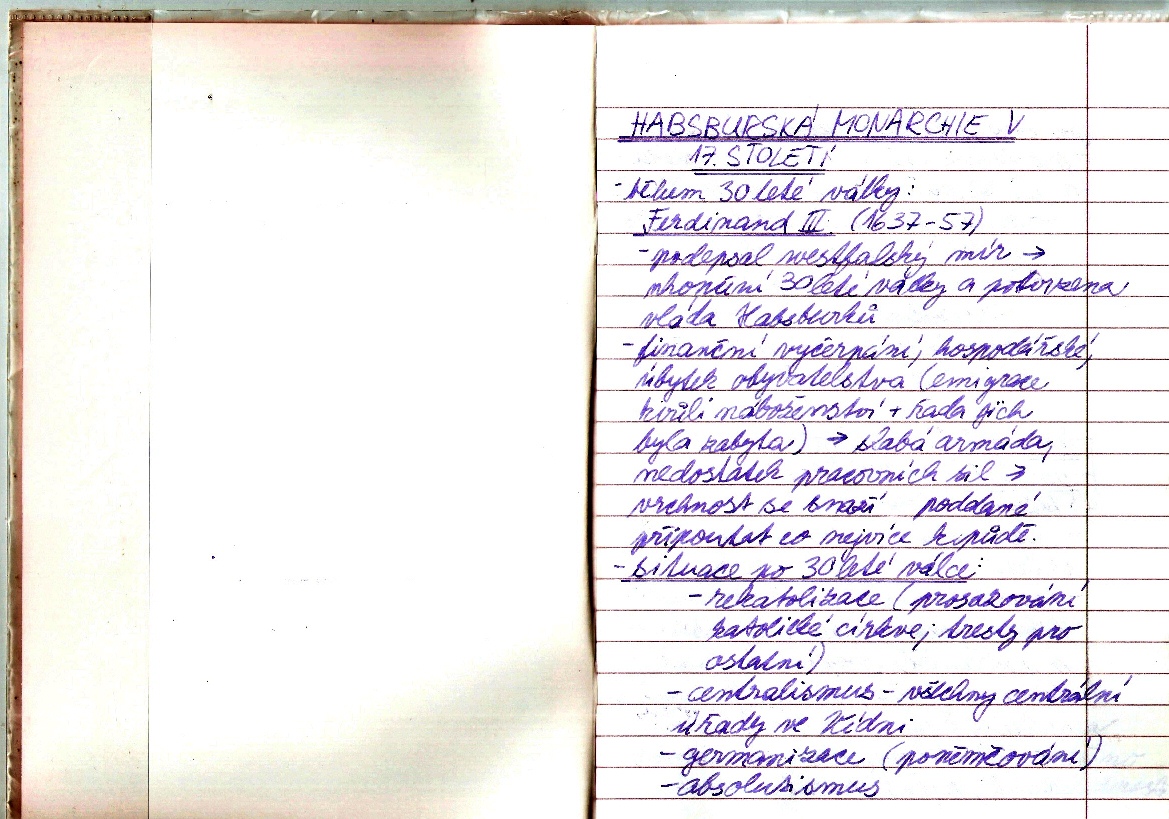 HABSBURSKÁ MONARCHIE V
17. STOLETÍ
- během 30leté války:
Ferdinand III. (1637-57)
- podepsal westfalský mír →
ukončení 30leté války a potvrzena
vláda Habsburků
- finanční vyčerpání, hospodářské,
úbytek obyvatelstva (emigrace
kvůli náboženství + řada jich
byla zabyta) → slabá armáda,
nedostatek pracovních sil →
vrchnost se snaží poddané
připoutat co nejvíce k půdě.
- situace po 30leté válce:
- rekatolizace (prosazování
katolické církve; tresty pro
ostatní)
- centralismus - všechny centrální
úřady ve Vídni
- germanizace (poněmčování)
- absolutismus